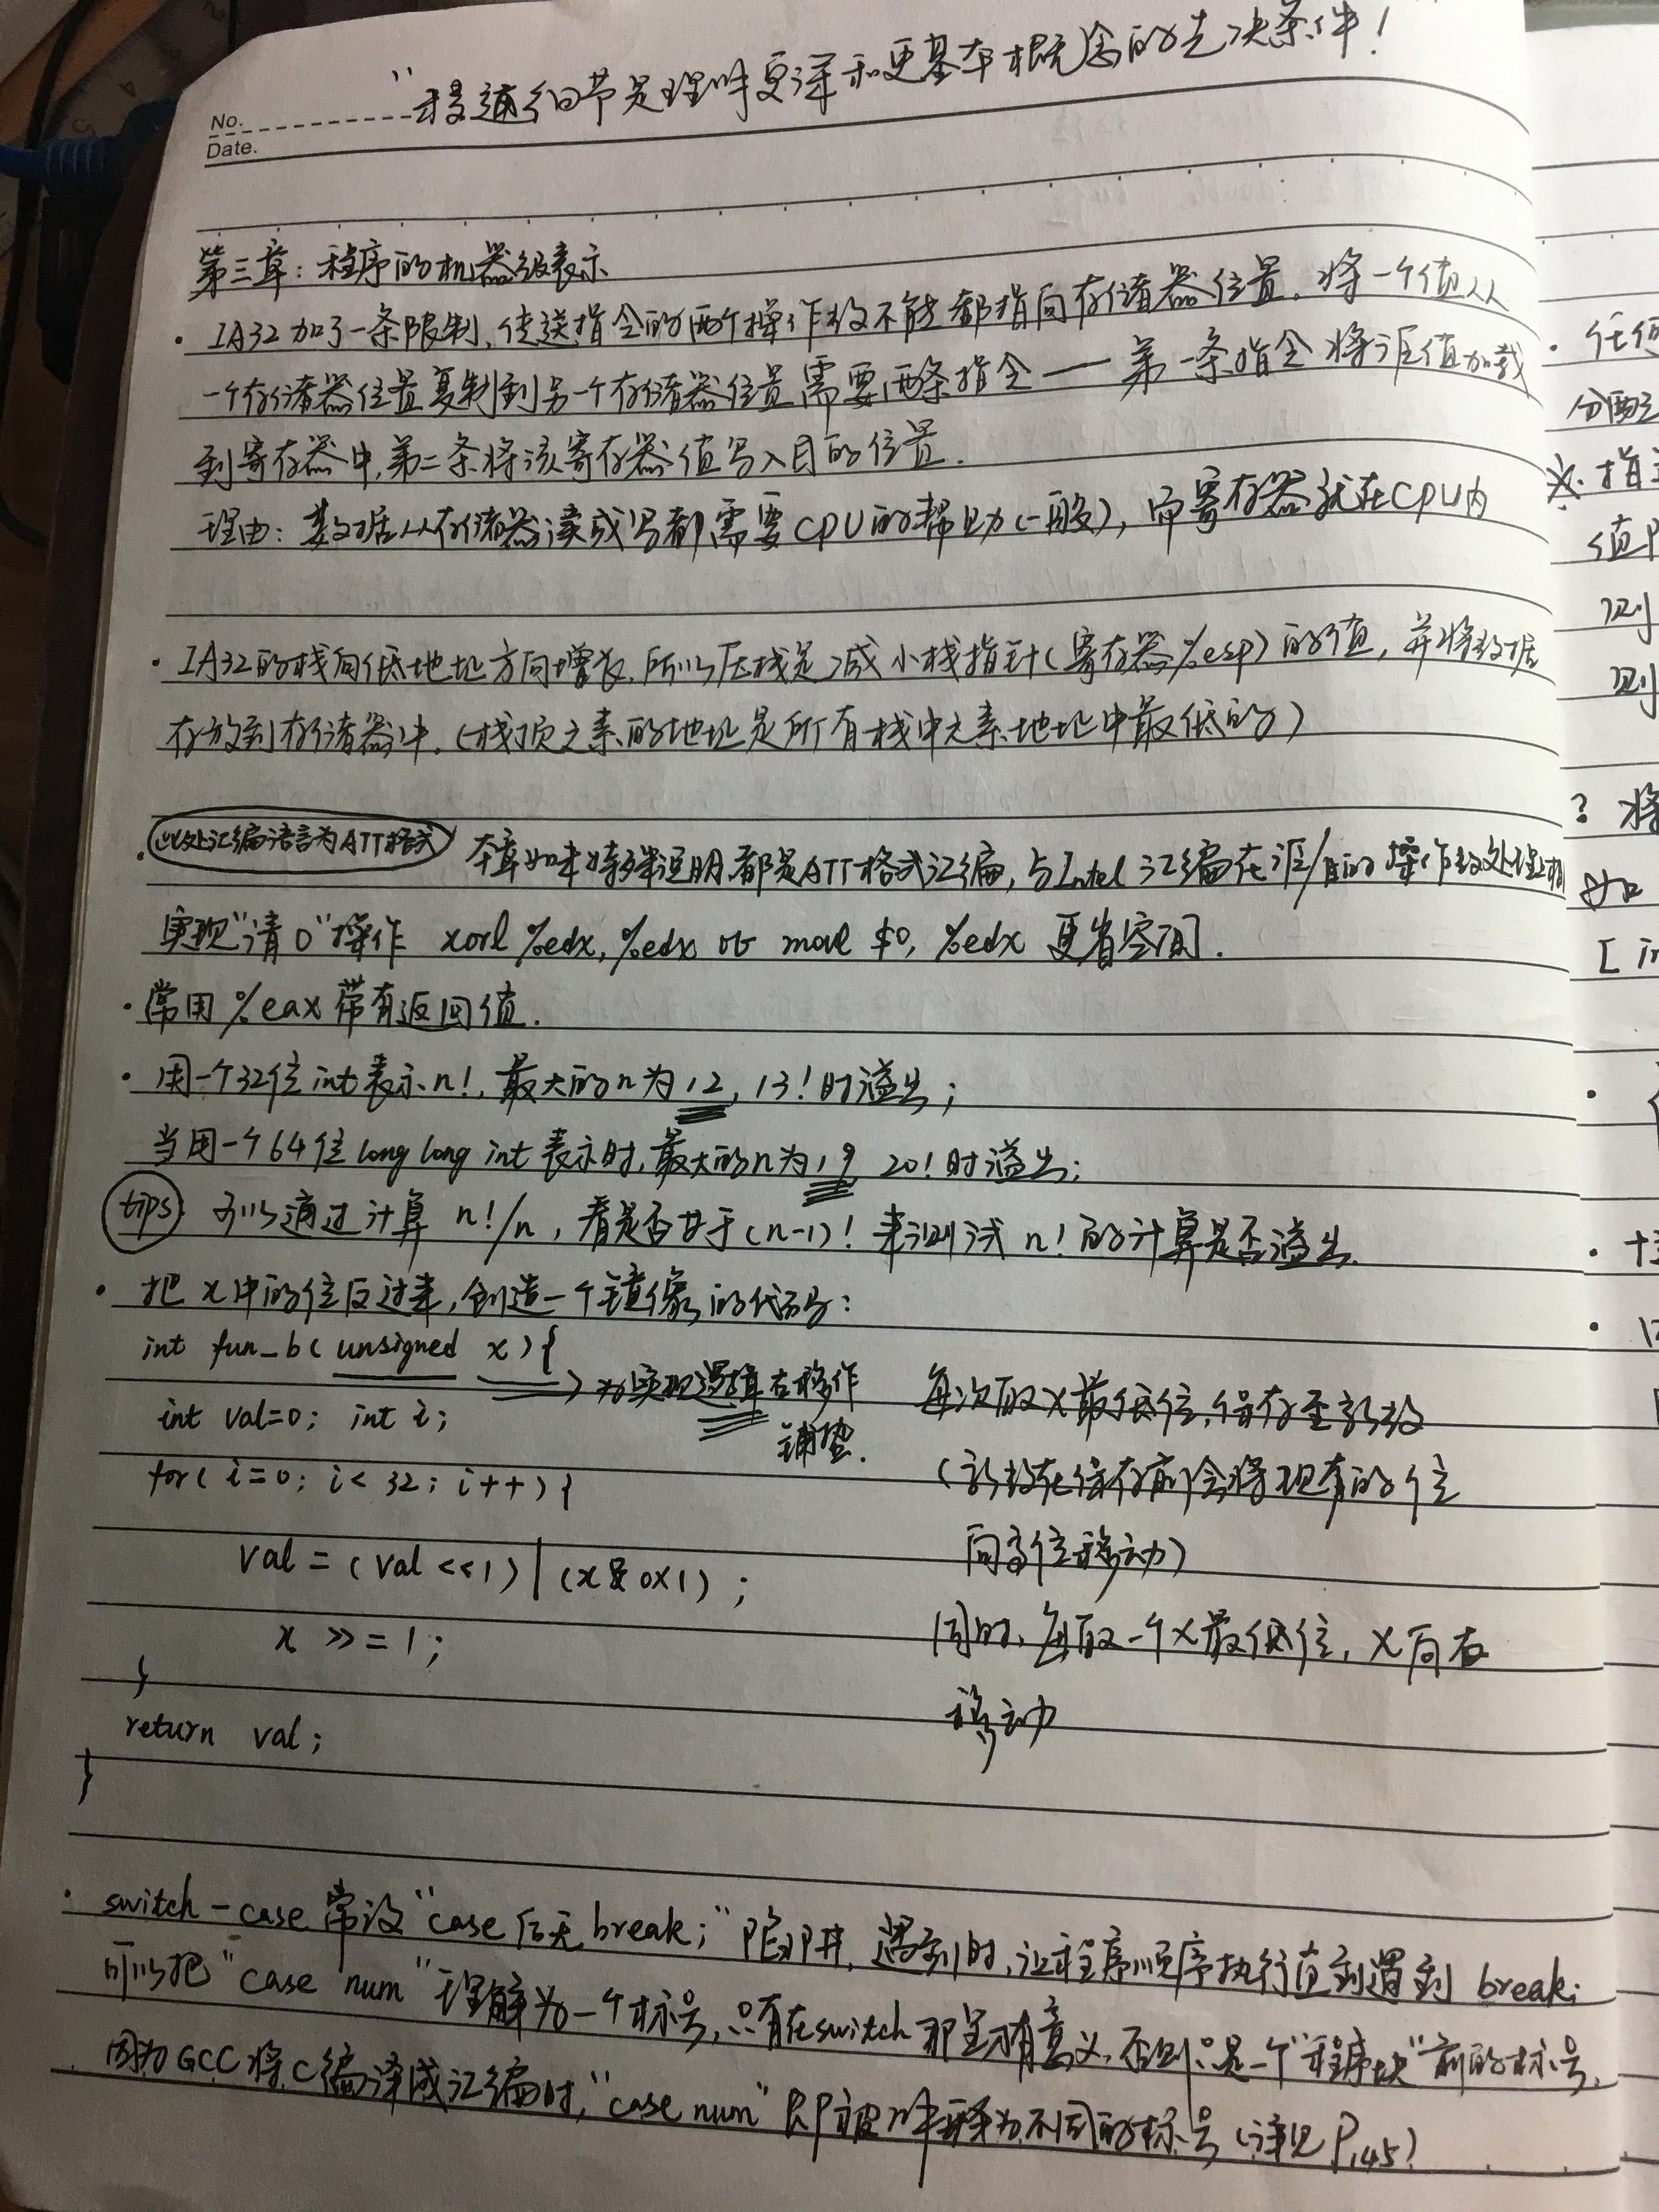 "精通细节是理解更深和更基本概念的先决条件!"
No.
Date.
第三章:程序的机器级表示
· IA32加了一条限制,传送指令的两个操作数不能都指向存储器位置。将一个值从
一个存储器位置复制到另一个存储器位置需要两条指令——第一条指令将源值加载
到寄存器中,第二条将该寄存器值写入目的位置.
理由:数据从存储器读或写都需要CPU的帮助(一般),而寄存器就在CPU内
· IA32的栈向低地址方向增长,所以压栈是减小栈指针(寄存器%esp)的值,并将数据
存放到存储器中.(栈顶元素的地址是所有栈中元素地址中最低的)
· 此处汇编语言为ATT格式 本章如未特殊说明,都是ATT格式汇编,与Intel汇编在源/目的操作数处理上相
实现"清0"操作 xorl %edx,%edx 比 movl $0,%edx 更省空间.
· 常用%eax带有返回值.
· 用一个32位int表示n!,最大的n为12,13!时溢出;
当用一个64位long long int表示时,最大的n为19,20!时溢出;
tips 可以通过计算 n!/n,看是否等于(n-1)!来测试n!的计算是否溢出.
· 把x中的位反过来,创造一个镜像的代码:
int fun_b(unsigned x){
→为实现逻辑右移作
铺垫.
int val=0; int i;
for(i=0; i<32; i++){
val=(val<<1)|(x&0X1);
x >>=1;
}
return val;
}
每次取x最低位,保存至新数
(新数在保存前会将现有的位
向高位移动)
同时,每取一个x最低位,x向右
移动
· switch-case常设"case后无break;"陷阱,遇到时,让程序顺序执行直到遇到break;
可以把"case num"理解为一个标号,只有在switch那里才有意义,否则只是一个"程序块"前的标号.
因为GCC将C编译成汇编时,"case num"即被解释为不同的标号(详见P145)
· 任何
分配
※·指
值
则
则
? 将
如
[in
· 十